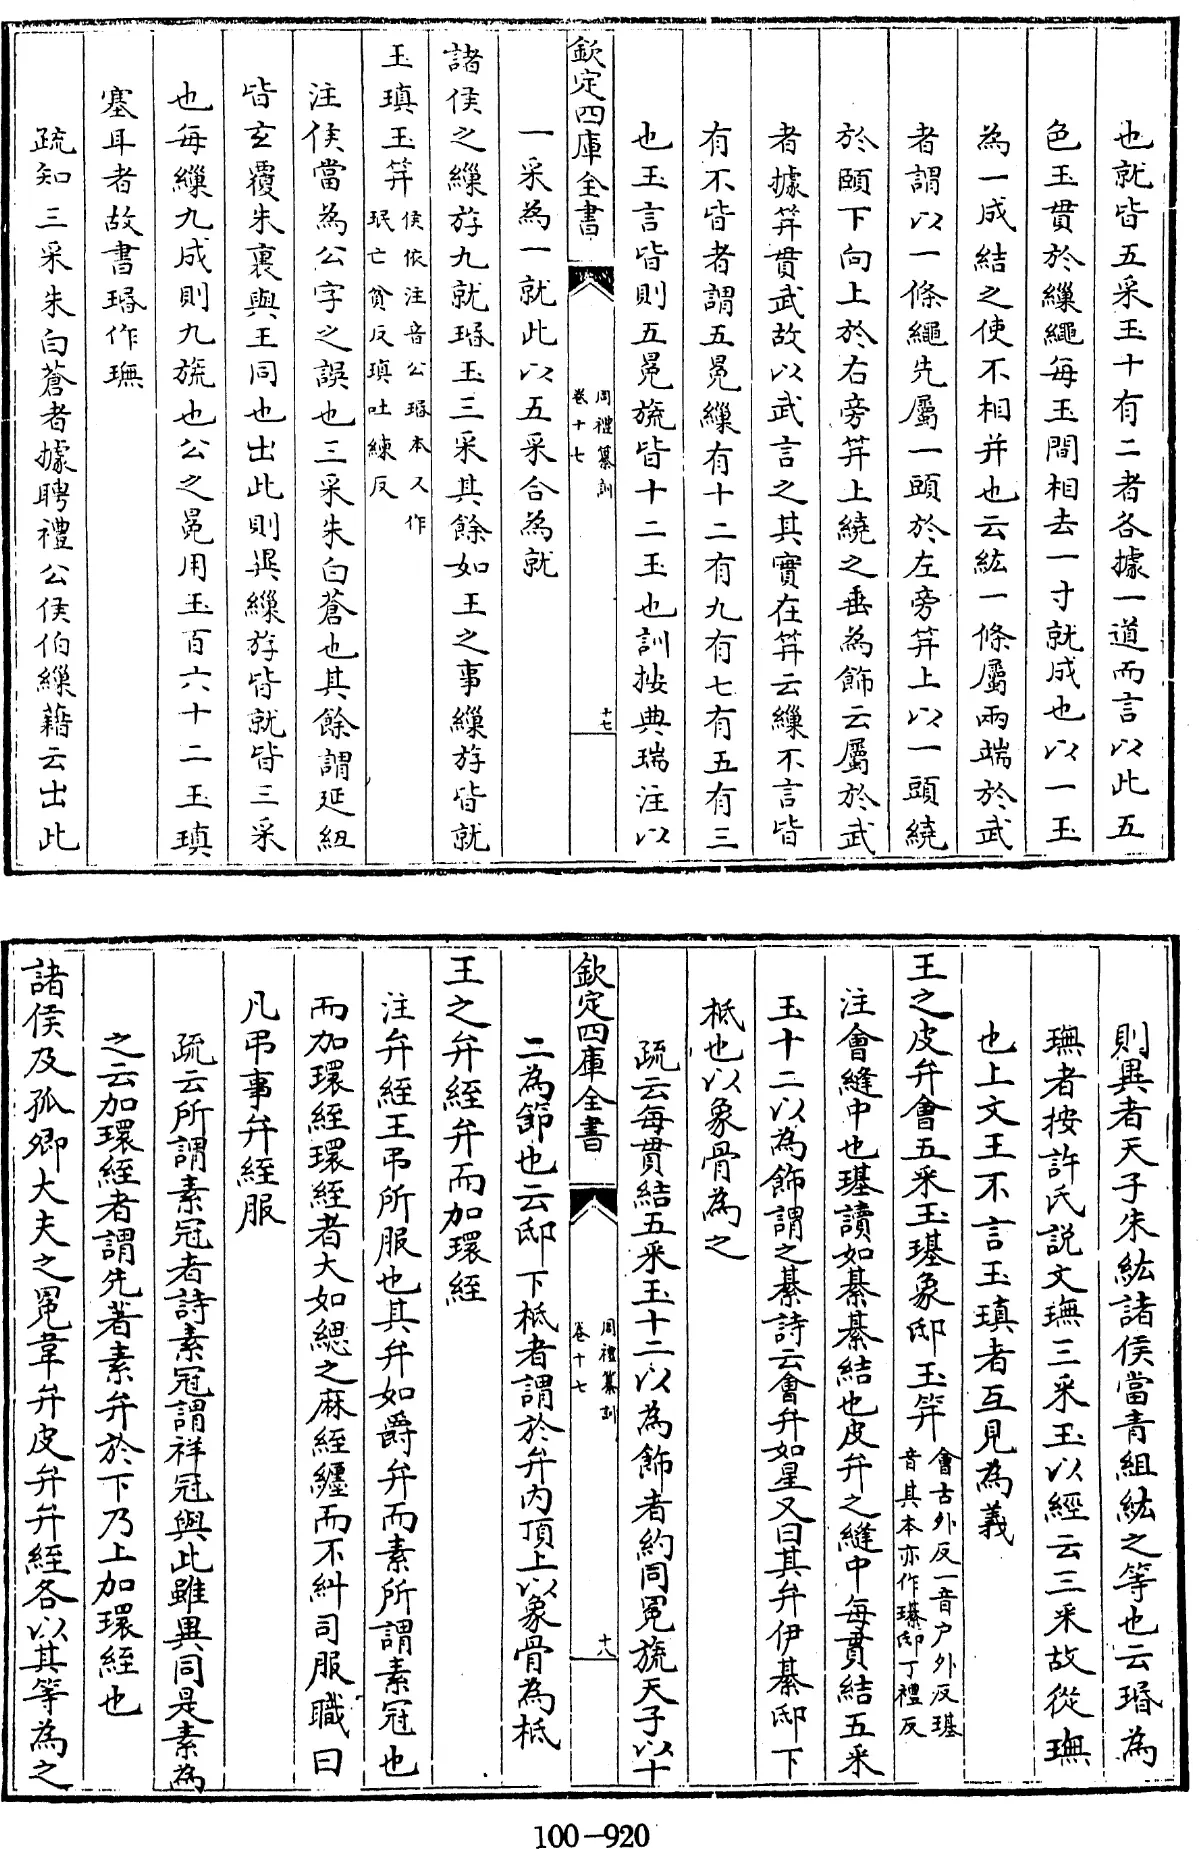 也就皆五采玉十有二者各據一道而言以此五
色玉貫於繅繩每玉間相去一寸就成也以一玉
為一成結之使不相并也云紘一條屬兩端於武
者謂以一條繩先屬一頭於左旁笄上以一頭繞
於頤下向上於右旁笄上繞之垂為飾云屬於武
者據笄貫武故以武言之其實在笄云繅不言皆
有不皆者謂五冕繅有十二有九有七有五有三
也玉言皆則五冕旒皆十二玉也訓按典瑞注以
欽定四庫全書
周禮纂訓
卷十七
十七
一采為一就此以五采合為就
諸侯之繅斿九就瑉玉三采其餘如王之事繅斿皆就
玉瑱玉笄侯依注音公瑉本又作
珉亡貧反瑱吐練反
注侯當為公字之誤也三采朱白蒼也其餘謂延紐
皆玄覆朱裏與王同也出此則異繅斿皆就皆三采
也每繅九成則九旒也公之冕用玉百六十二玉瑱
塞耳者故書瑉作璑
疏知三采朱白蒼者據聘禮公侯伯繅藉云出此
則異者天子朱紘諸侯當青組紘之等也云瑉為
璑者按許氏説文璑三采玉以經云三采故從璑
也上文王不言玉瑱者互見為義
王之皮弁會五采玉璂象邸玉笄會古外反一音户外反璂
音其本亦作璂邸丁禮反
注會縫中也璂讀如綦綦結也皮弁之縫中每貫結五采
玉十二以為飾謂之綦詩云會弁如星又曰其弁伊綦邸下
柢也以象骨為之
疏云每貫結五采玉十二以為飾者約同冕旒天子以十
欽定四庫全書
周禮纂訓
卷十七
十八
二為節也云邸下柢者謂於弁内頂上以象骨為柢
王之弁絰弁而加環絰
注弁絰王弔所服也其弁如爵弁而素所謂素冠也
而加環絰環絰者大如緦之麻絰纏而不糾司服職曰
凡弔事弁絰服
疏云所謂素冠者詩素冠謂祥冠與此雖異同是素為
之云加環絰者謂先著素弁於下乃上加環絰也
諸侯及孤卿大夫之冕韋弁皮弁弁絰各以其等為之
100-920